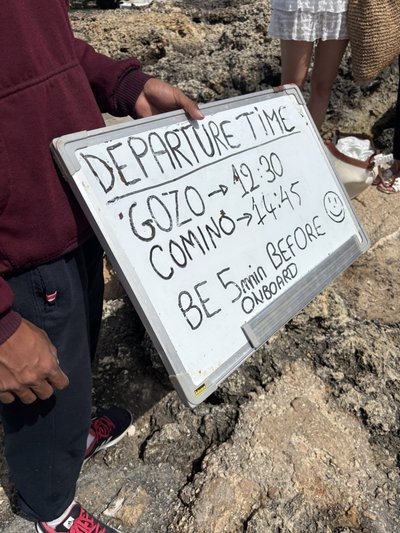 DEPARTURE TIME
GOZO → 12:30
COMINO → 14:45
BE 5min BEFORE
ONBOARD